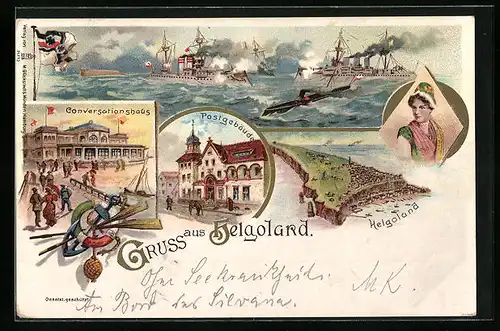 Conversationshaus
Postgebäude
Helgoland
Gruss aus Helgoland.
Ohne Seekrankheit
MK.
An Bord der Silvana.
Gesetzl. geschützt